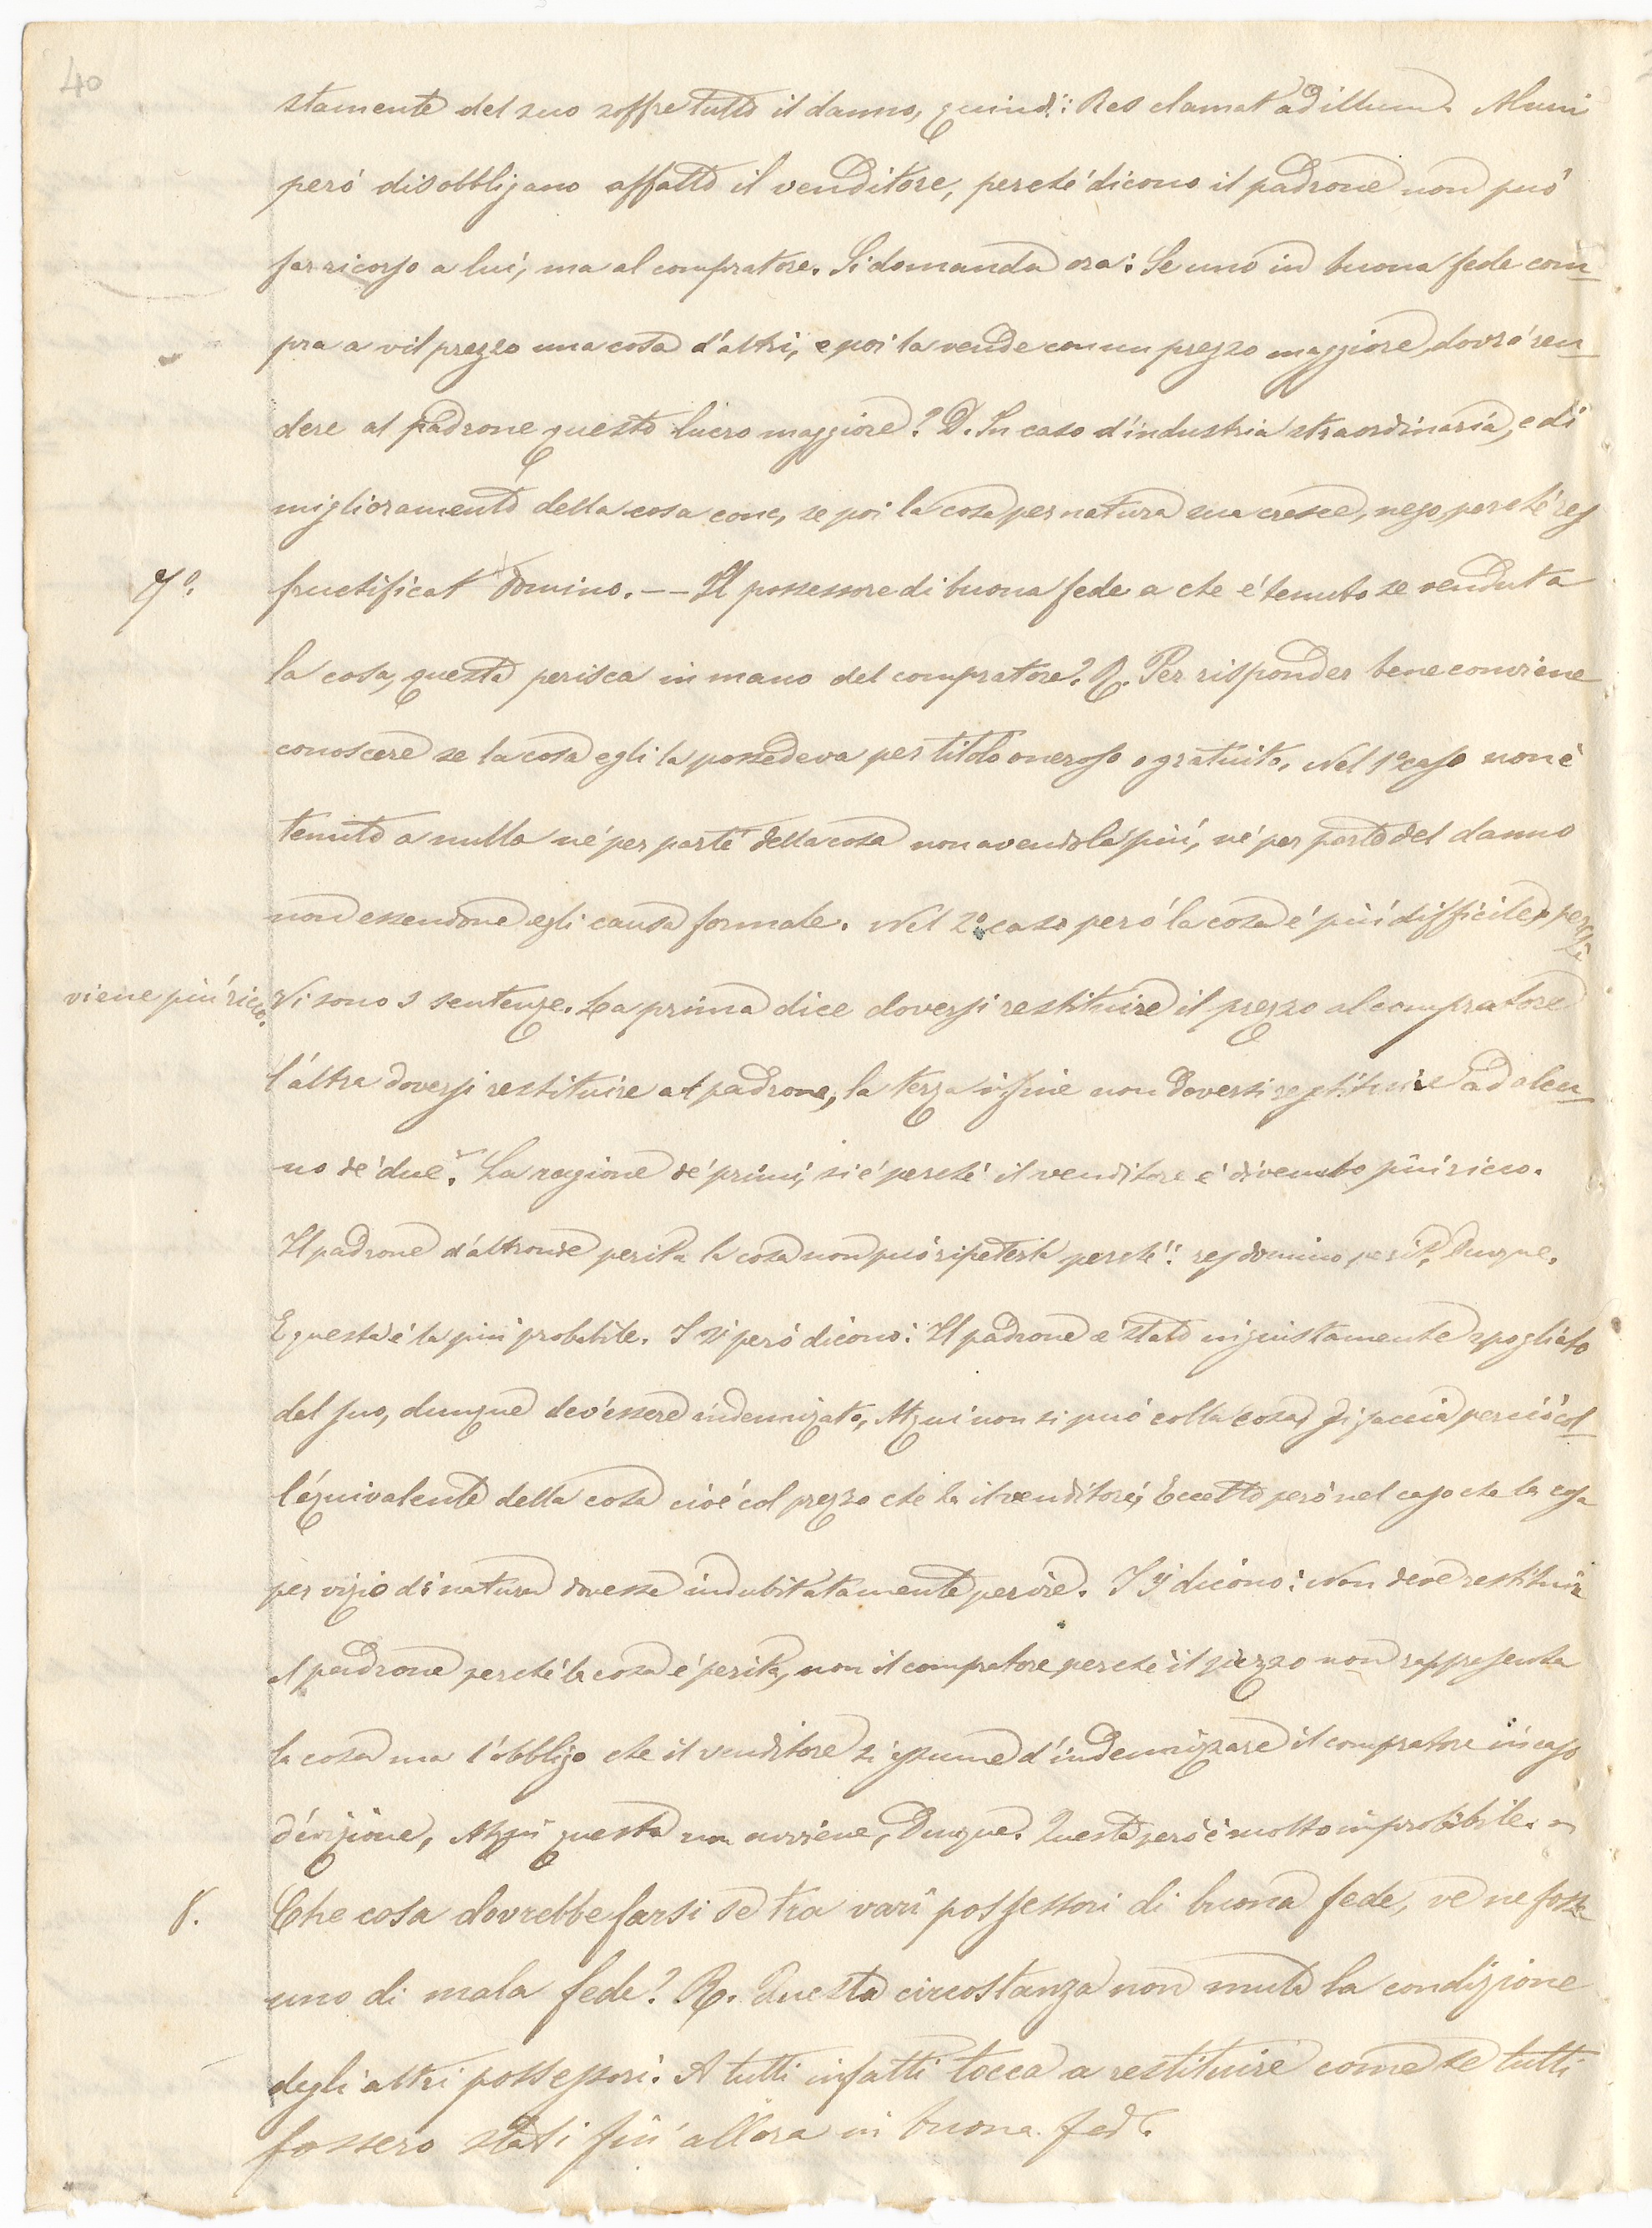 40
stamente del suo soffre tutto il danno, quindi: Res clamat ad illum. Alcuni
però disobbligano affatto il venditore, perché dicono il padrone non può
far ricorso a lui, ma al compratore. Si domanda ora: Se uno in buona fede com
pra a vil prezzo una cosa d'altri, e poi la vende con un prezzo maggiore, dovrà ren
dere al padrone questo lucro maggiore? D. In caso d'industria straordinaria, e di
miglioramento della cosa conc, se poi la cosa per natura sua cresce, nego, perché res
7º. fructificat Domino. -- Il possessore di buona fede a che è tenuto se venduta
la cosa, questa perisca in mano del compratore? R. Per risponder bene conviene
conoscere se la cosa egli la possedeva per titolo oneroso o gratuito. Nel 1º caso non è
tenuto a nulla né per parte della cosa non avendola più, né per parte del danno
non essendone egli causa formale. Nel 2º caso però la cosa è più difficile, perchè
viene più ricco. Vi sono 3 sentenze. La prima dice doversi restituire il prezzo al compratore
l'altra doversi restituire al padrone, la terza infine non doversi restituire ad alcu
no de' due. La ragione de' primi, si è perché il venditore è divenuto più ricco.
Il padrone d'altronde perita la cosa non può ripeterla perché: res domino perit, Dunque.
E questa è la più probabile. I 2i però dicono: Il padrone è stato ingiustamente spogliato
del suo, dunque dev'essere indennizato, Atqui non si può colla cosa, si faccia perciò col
l'equivalente della cosa cioè col prezzo che ha il venditore; Eccetto però nel caso che la cosa
per vizio di natura dovesse indubitatamente perire. I 3i dicono: Non deve restituire
al padrone perché la cosa è perita, non il compratore perché il prezzo non rappresenta
la cosa ma l'obbligo che il venditore si assume d'indennizzare il compratore in caso
d'evizione, Atqui questa non avviene, Dunque. Questa però è molto improbabile.
8. Che cosa dovrebbe farsi se tra vari possessori di buona fede, ve ne fosse
uno di mala fede? R. Questa circostanza non muta la condizione
degli altri possessori. A tutti infatti tocca a restituire come se tutti
fossero stati fin'allora in buona fede.